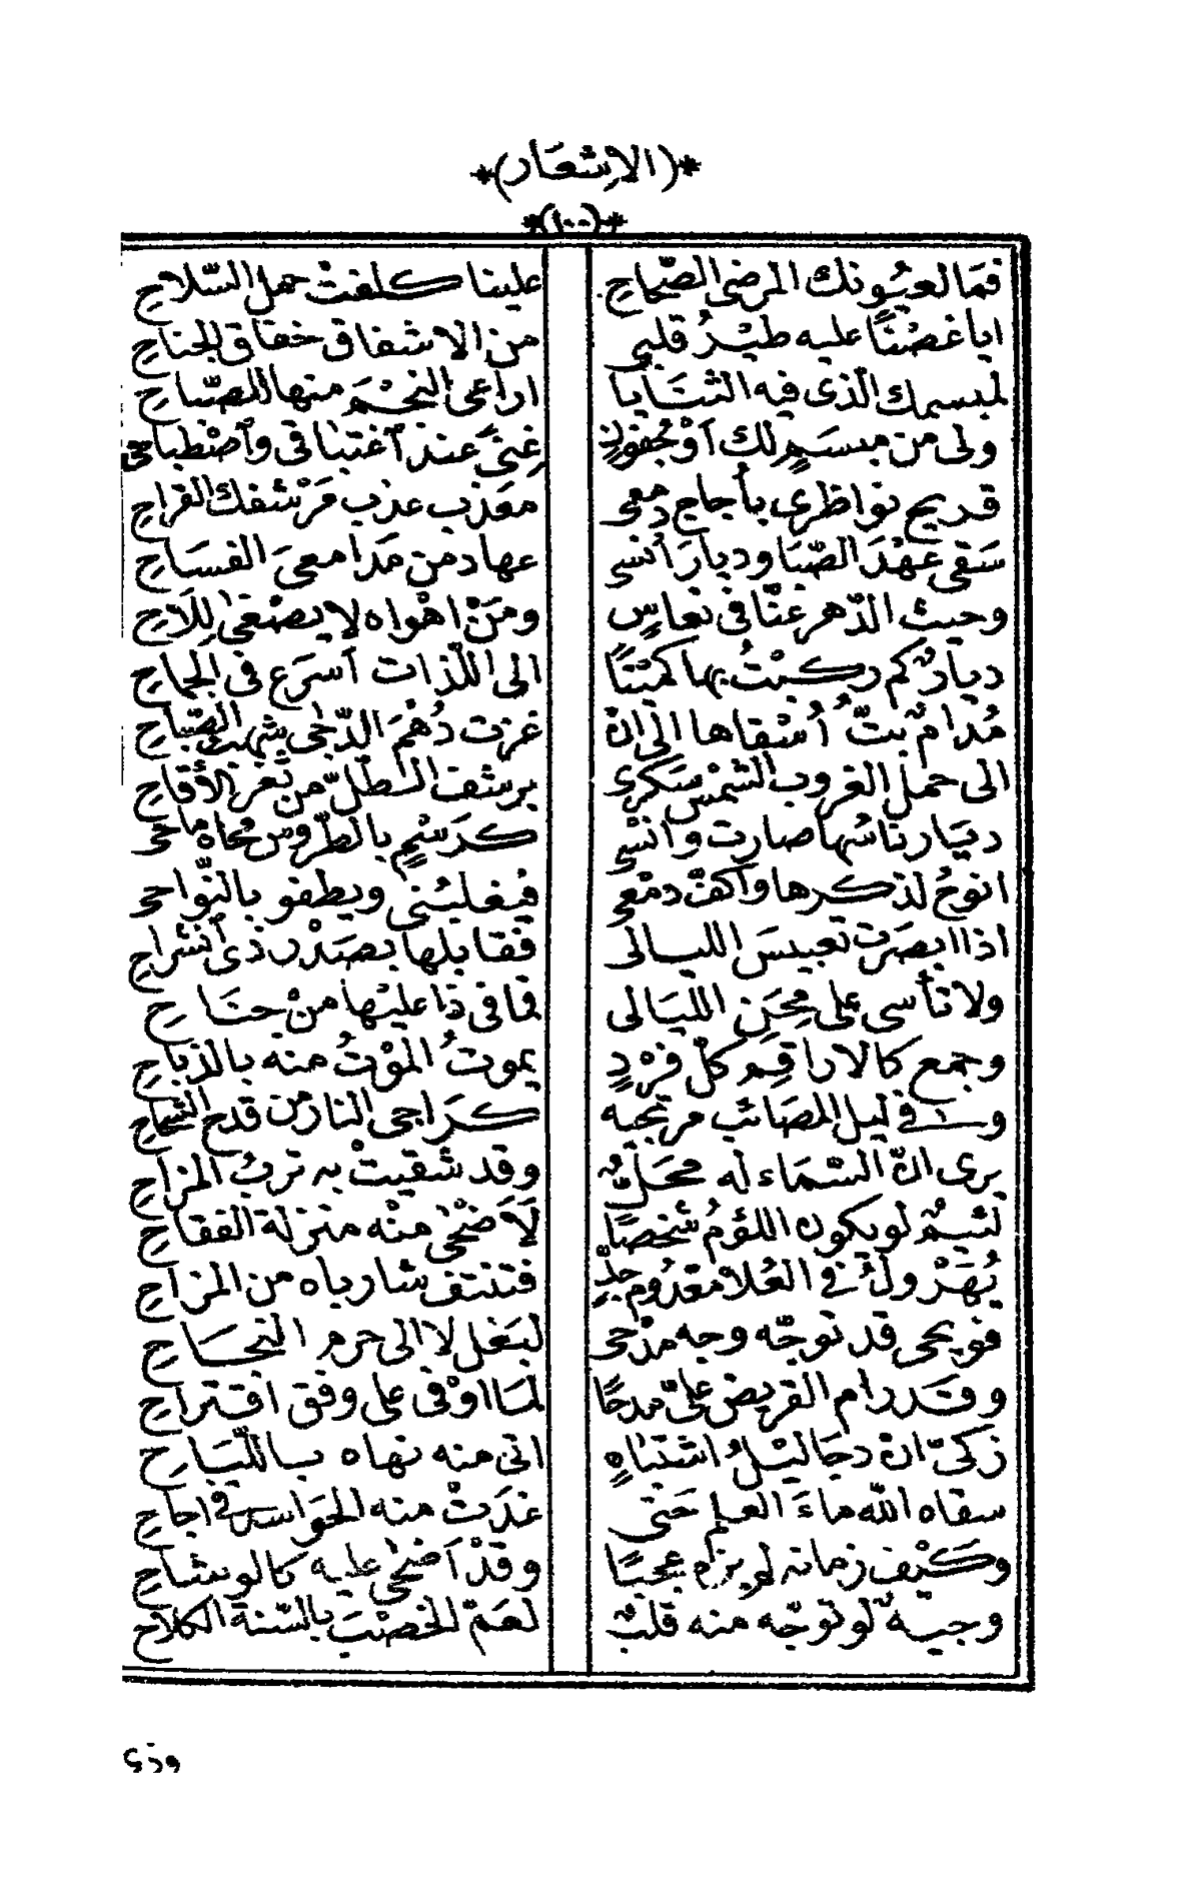 *(الاشعار)*
*(١٠٠)*
فمَا لعيُونك المرضى الصّحاحِ علينا كلفتْ حمل السّلاحِ
ايا غصْنًا عليه طيْرُ قلبى من الاشفاق خفاق الجناحِ
لمبسمك الّذى فيه الثنَايا اراعى النجْم منها للصّباحِ
ولى من مبسَمٍ لك اوْ جُفونٍ غِنىً عند ٱغتباقى وٱصْطباحى
قريح نواظرى بأجاج دمعى معذب عذب مَرْشفك القراحِ
سَقى عهْدَ الصّبَا وديارَ أنسى عهاد من مَدامعىَ الفسَاحِ
وحيث الدّهر عنّا فى نعاسٍ ومَنْ اهْواه لا يصْغى لِلَاحِ
ديارٌ كم ركبْتُ بها كميْتًا الى اللّذات أسرَع فى الجماحِ
مُدامٌ بتّ أُسْقاها الى انْ غزت دُهْمَ الدّجى شهبُ الصّباحِ
الى حمل الغروب الشمْس سَكرى برشف الطلّ من ثغر الأقاحِ
ديَار ناسُها صارت وانْسى كرَسْمٍ بالطّروس محاه ماحى
انوحُ لذكرها وأكفّ دمْعى فيغلبُنى ويطفو بالنّواحى
اذا ابصَرت تعبيسَ الليالى فقابلها بصَدْر ذى ٱنشراحِ
ولا تأسى على مِحَنِ الليَالى فما فى ذا عليْها منْ جنَاحِ
وجمع كالاراقِم كلّ فرْدٍ يموتُ الموْتُ منه بالذباحِ
فى ليل المصَائب مرتجيه كرَاجى النار من قدح الشحاحِ
يرى انّ السّمَاء له محَلٌّ وقد شقيتْ به تربُ المزاحِ
لئيمٌ لو يكون اللؤمُ شخصًا لَأَضْحٰى منْه منزلة الفقاحِ
يُهَرْولُ فى العُلا معْدُوم حلّمٍ فتنتف شارباه من المزاحِ
فويحى قد توجّه وجه مدْحى لبغل لا الى حرم النجَاحِ
وقدرام القريض علىّ مدحًا لمَا اوْفى على وفق اقتراحِ
زكىّ انْ دجَا ليْلُ اشتبٰاهٍ اتى منه نهاه باللّيَاحِ
سقاه الله ماءَ العلم حَتى غدَتْ منه الحوَاسد فى اجاحِ
وكيْف زمانه لم يزهُ عجبًا وقدْ أضحٰى عليه كالوشاحِ
وجيهٌ لو توجّه منه قلبٌ لعَمّ الخصْبَ بالسّنة الكلاحِ